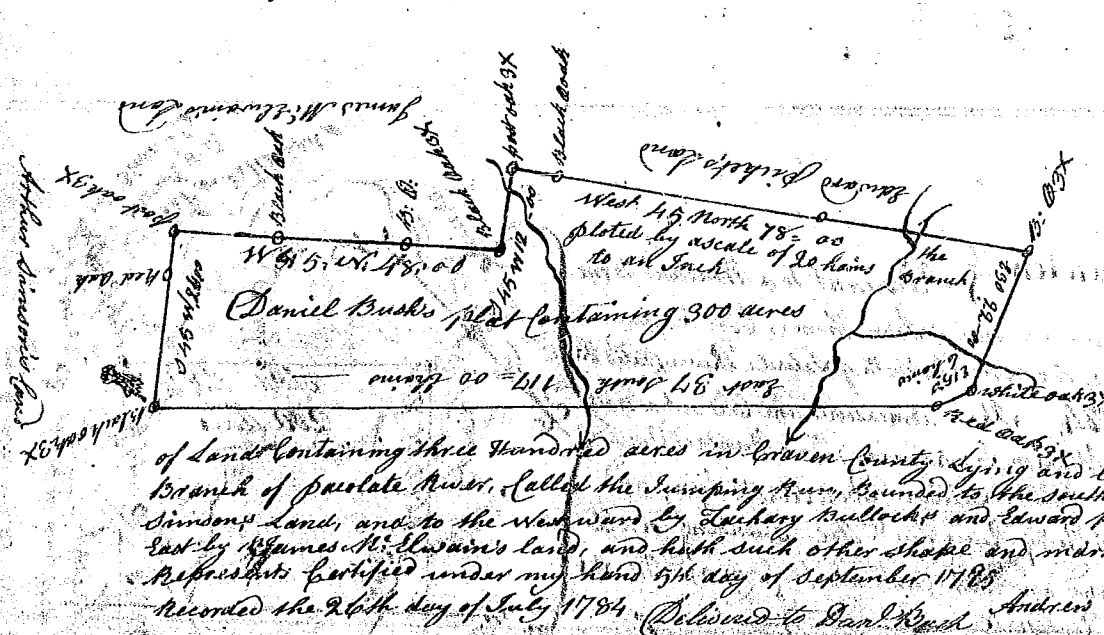 James McElwain's Land
Edward Pricket's Land
Arthur Simson's Land
post oak 3X
Black Oak
B: O: 3X
Black Oak
B: O:
Black Oak 3X
post oak 3X
Red Oak
Black oak 3X
West 45 North 78=00
ploted by a scale of 20 hains
to an Inch
the
Branch
Daniel Bush's plat Containing 300 acres
East 37 South 117=00 Chains
White oak 3X
Red Oak 3X
of Land Containing three Hundred acres in Craven County Lying and
Branch of pacolate River, Called the Jumping Run, Bounded to the south
Simson's Land, and to the Westward by Zachary Bullock's and Edward
East by James McElwain's land, and hath such other shape and
Represents Certified under my hand 5th day of September
Recorded the 26th day of July 1784 Delivered to Danl. Bush Andrew